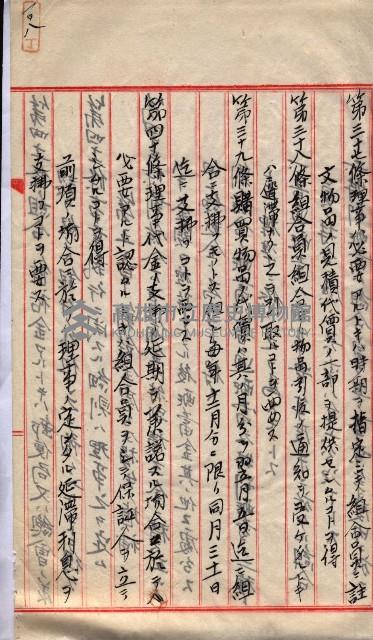 第三十七條理事ハ必要アルトキハ時期ヲ指定シテ組合員ニ註
文物品ノ見積代價ノ一部ヲ提供セシムルコトヲ得
第三十八條組合員組合ヨリ物品引取ノ通知ヲ受ケタルトキ
ハ遲滯ナク之ヲ引取ルコトヲ要ス
第三十九條購買物品ノ代價ハ其ノ月分ヲ翌月五日迄ニ組
合ニ支拂フモノトス但シ每年十二月分ニ限リ同月三十一日
迄ニ支拂フコトヲ要ス
第四十條理事代金支拂ノ延期ヲ承諾スル場合ニ於テハ
必要アリト認ムルトキハ組合員ヲシテ保証人ヲ立テ
シムルコトヲ得
前項ノ場合ニ於テハ理事ノ定ムル延滯利息ヲ
支拂フコトヲ要ス
高雄市立歷史博物館
KAOHSIUNG MUSEUM OF HISTORY